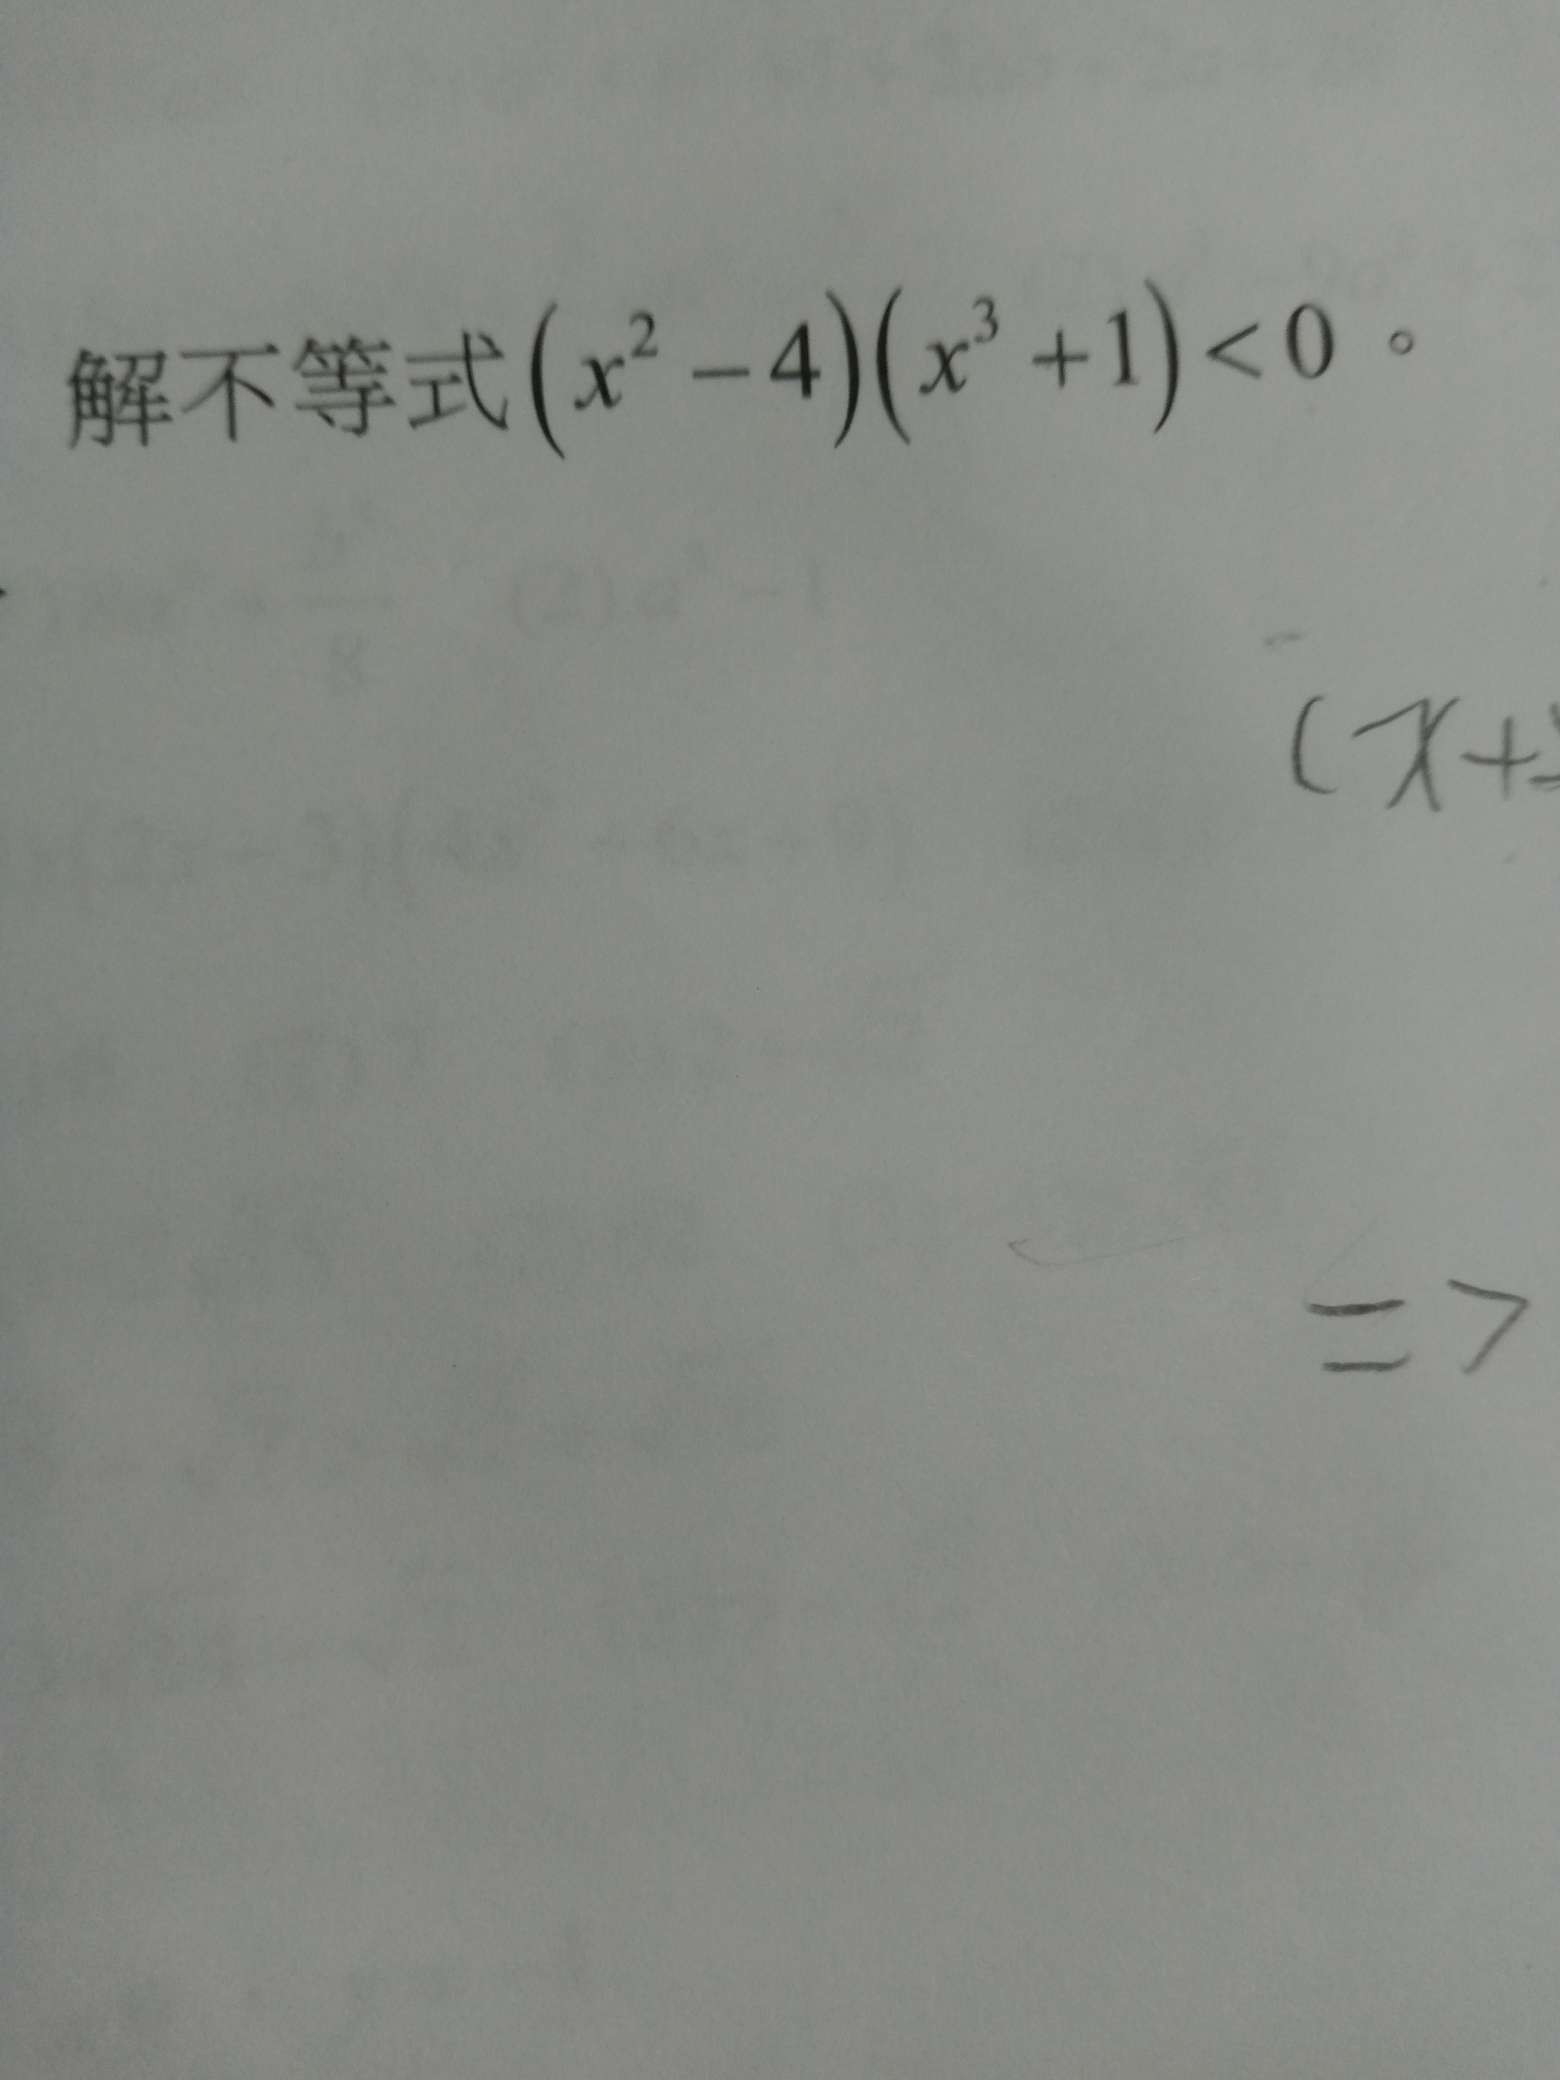 解不等式(x² − 4)(x³ + 1) < 0。
(x+
=>